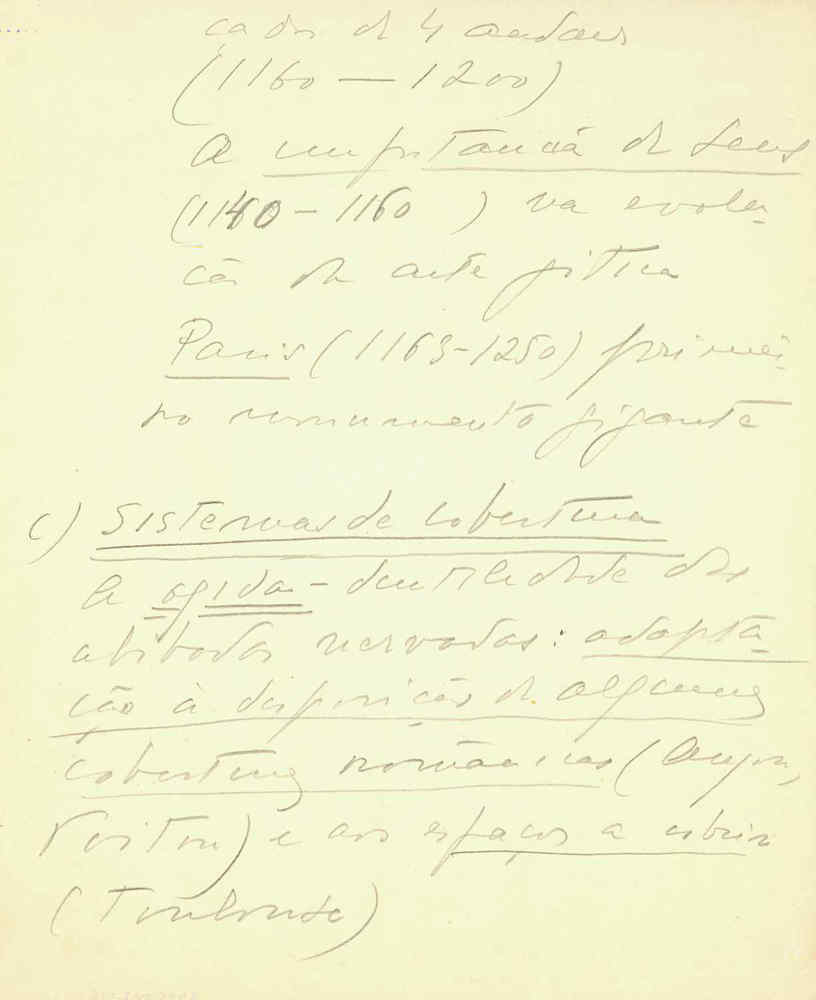 cados de 4 andares
(1160 — 1200)
A importância de Sens
(1140 – 1160) na evolu-
ção da arte gótica
Paris (1163-1250) primei-
ro monumento gigante
c) Sistemas de cobertura
A agidas - ductilidade das
abóbadas nervadas: adapta-
ção à disposição de algumas
coberturas românicas (Anjou,
Poitou) e aos espaços a cobrir
(Toulouse)